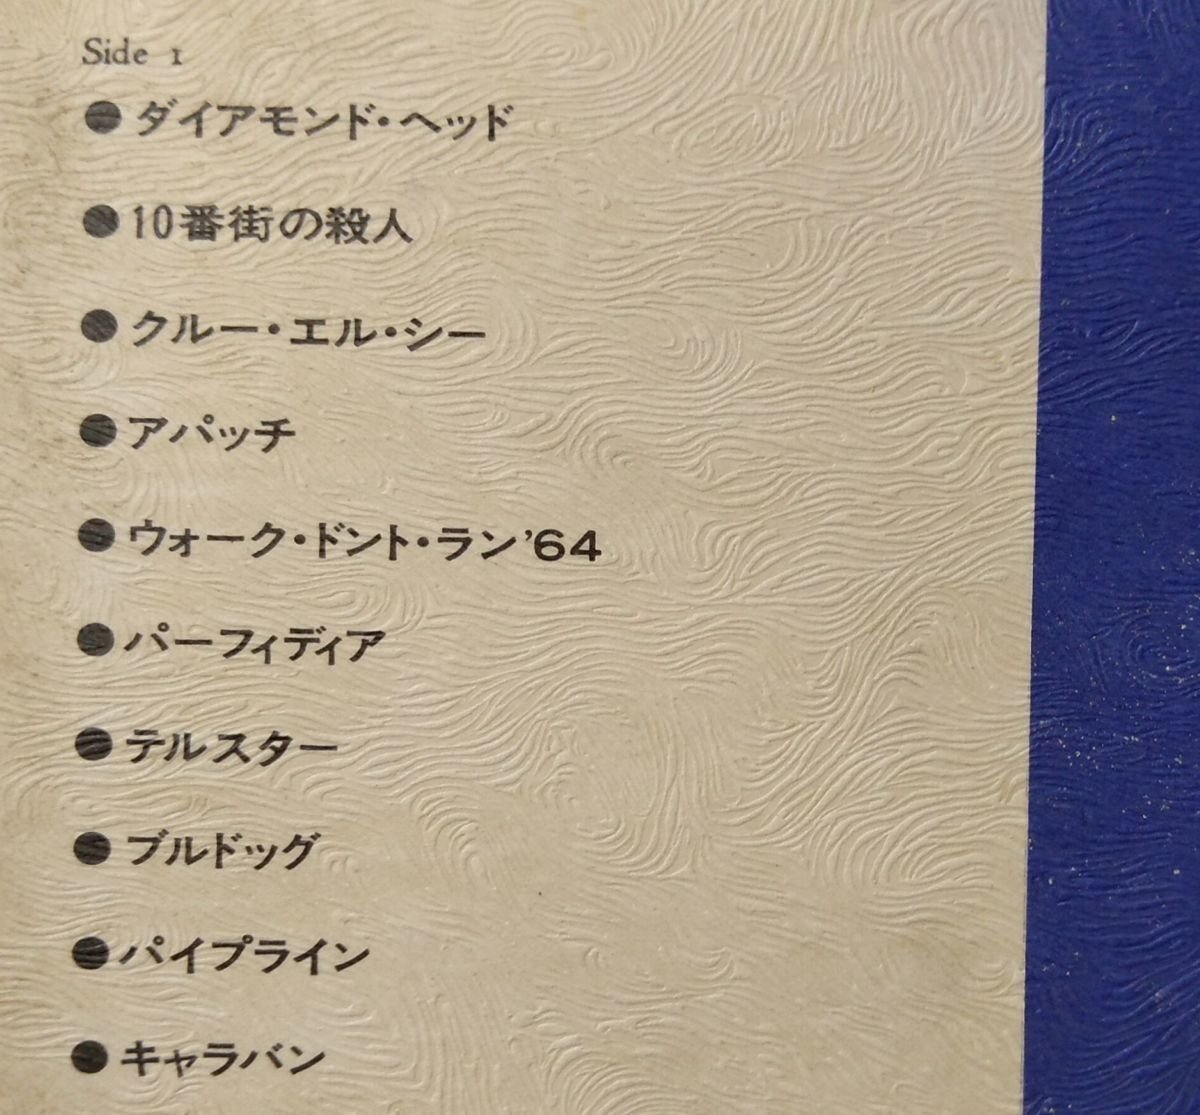 Side 1
●ダイアモンド・ヘッド
●10番街の殺人
●クルー・エル・シー
●アパッチ
●ウォーク・ドント・ラン'64
●パーフィディア
●テルスター
●ブルドッグ
●パイプライン
●キャラバン